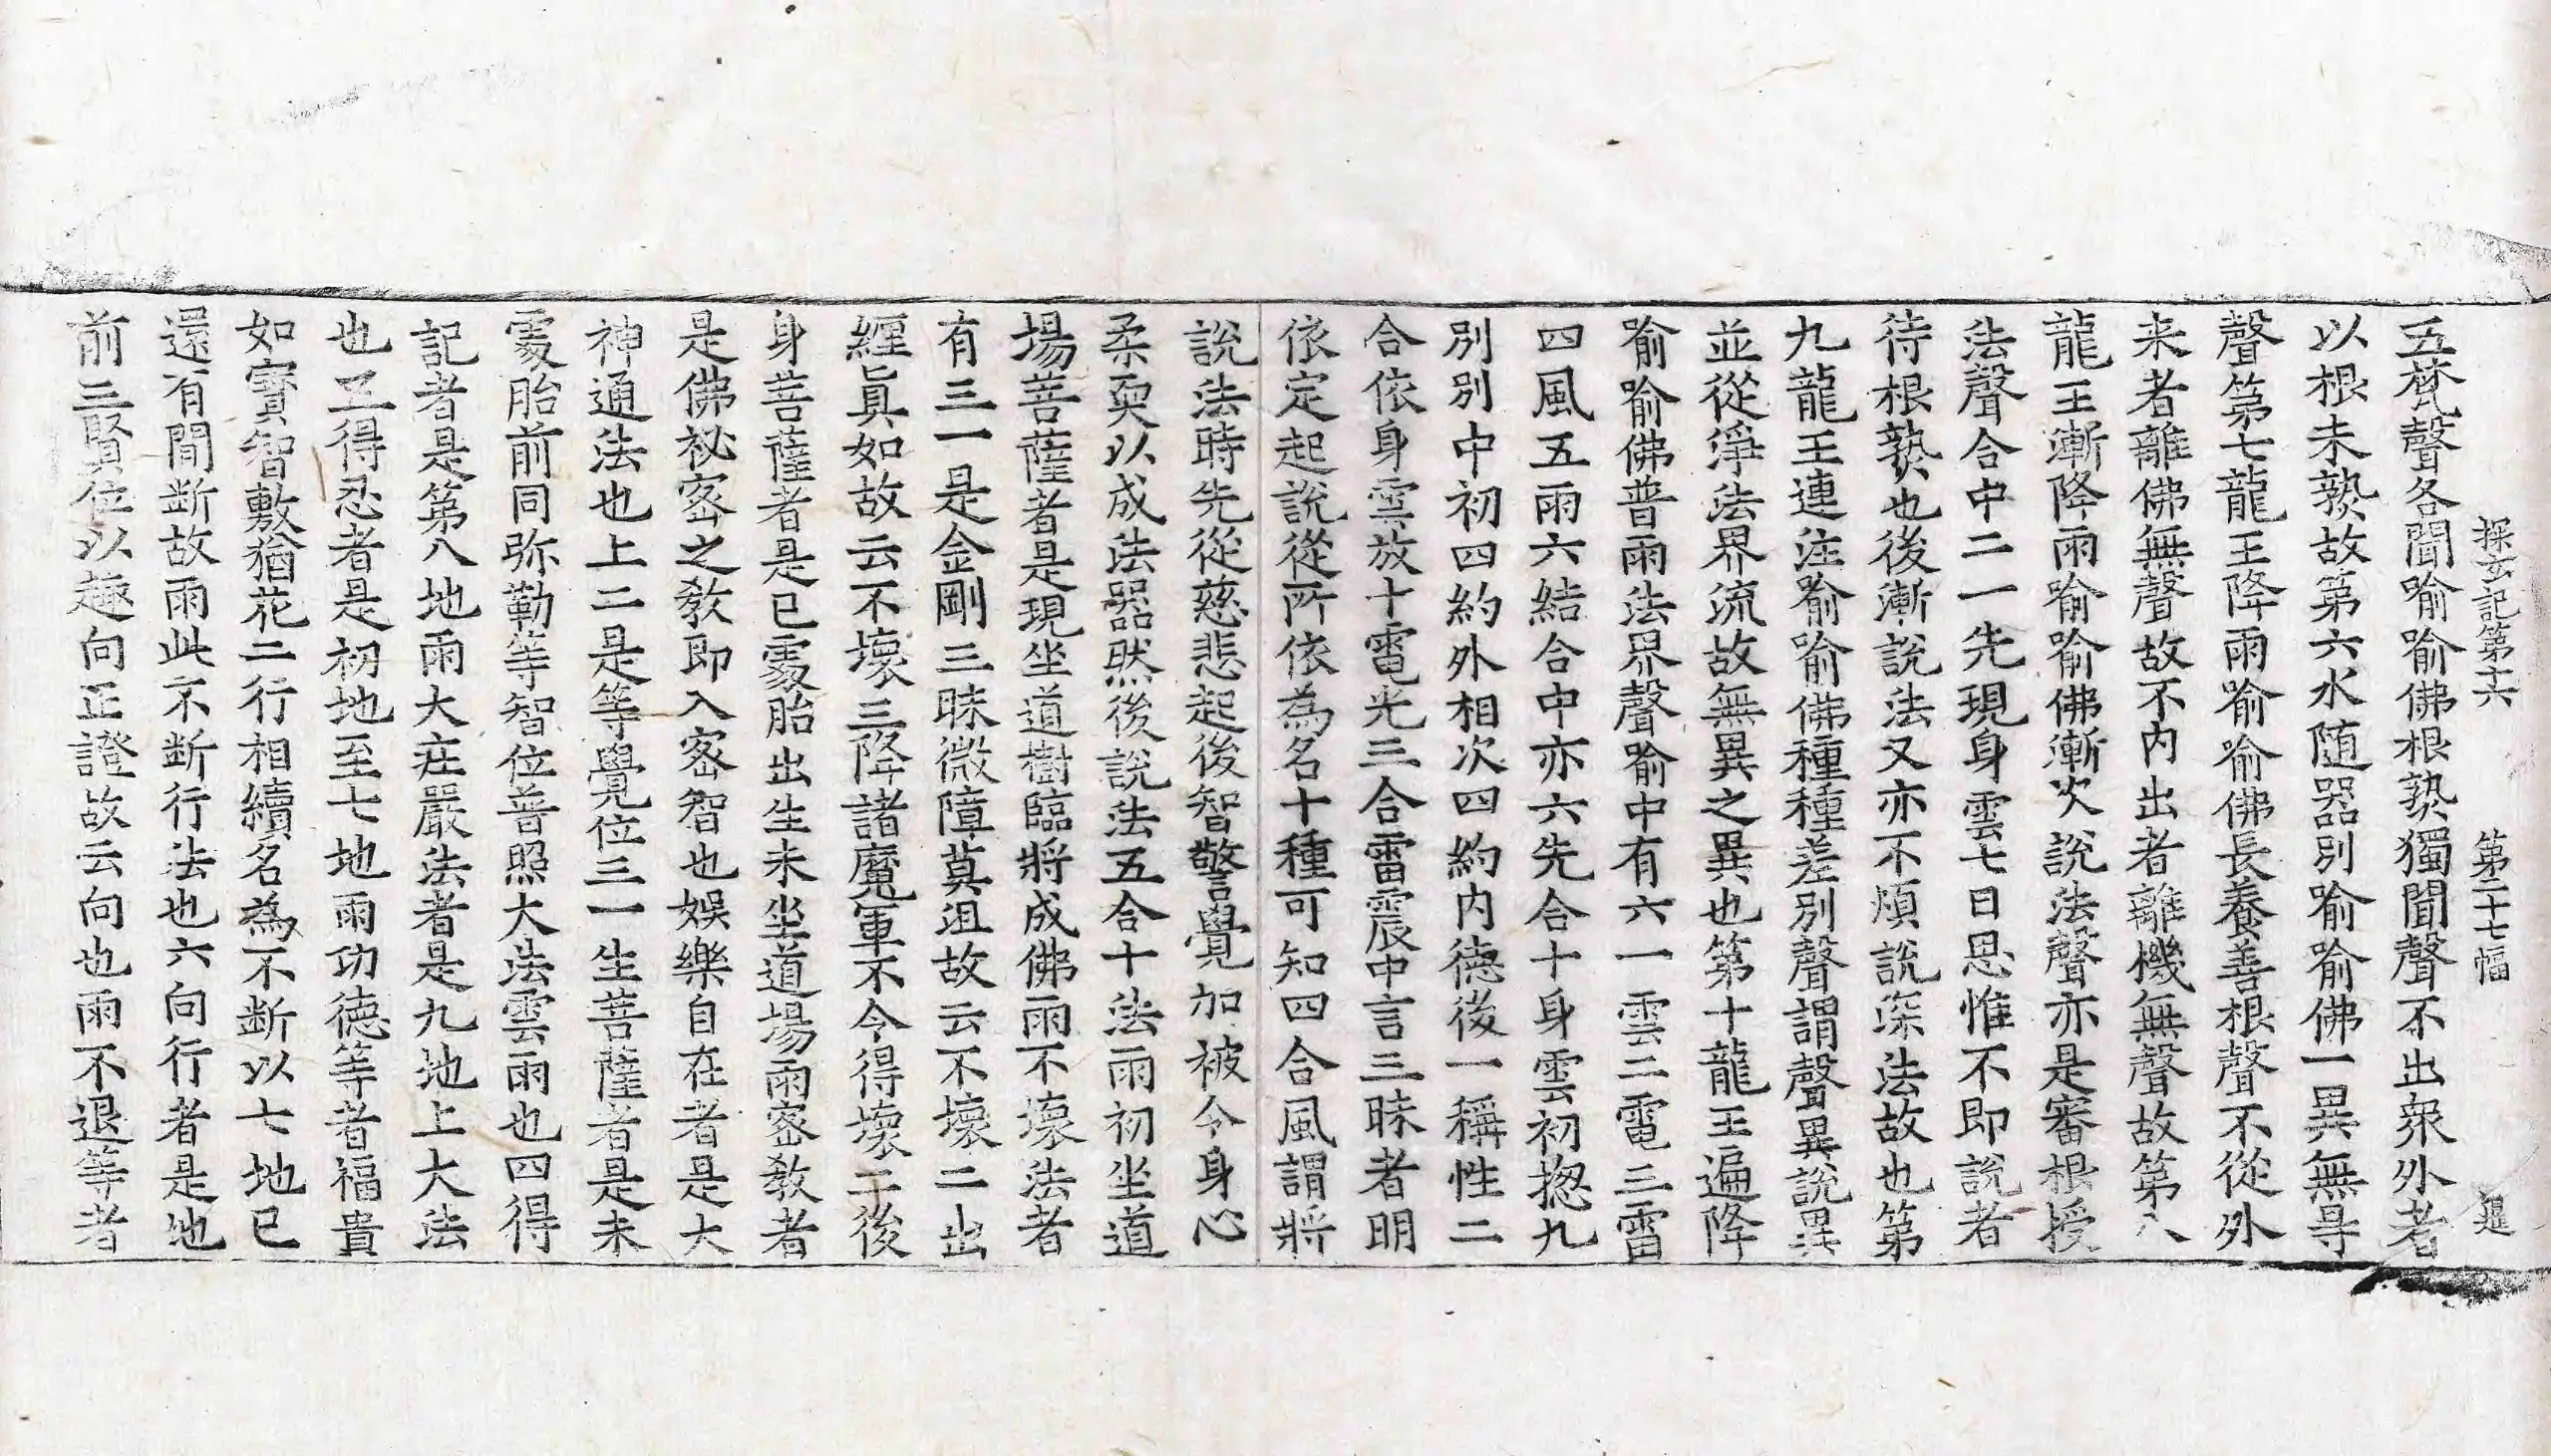 探玄記第十六 第二十七幅 𨒪
五梵聲各聞喻喻佛根𤍠獨聞聲不出衆外者
以根未𤍠故第六水随器別喻喻佛一異無㝵
聲第七龍王降雨喻喻佛長養善根聲不從外
来者離佛無聲故不内出者離機無聲故第八
龍王漸降雨喻喻佛漸次說法聲亦是審根授
法聲合中二一先現身雲七日思惟不即說者
待根𤍠也後漸說法又亦不頓說深法故也第
九龍王連注喻喻佛種種差別聲謂聲異說異
並從淨法界流故無異之異也第十龍王遍降
喻喻佛普雨法界聲喻中有六一雲二電三雷
四風五雨六結合中亦六先合十身雲初揔九
別別中初四約外相次四約内德後一稱性二
合依身雲放十電光三合雷震中言三昧者明
依定起說從所依為名十種可知四合風謂將
說法時先從慈悲起後智警覺加被令身心
柔耎以成法器然後說法五合十法雨初坐道
場菩薩者是現坐道樹臨將成佛雨不壞法者
有三一是金剛三昧微障莫沮故云不壞二出
纏眞如故云不壞三降諸魔軍不令得壞二後
身菩薩者是已處胎出生未坐道場雨密教者
是佛祕密之教即入密智也娛樂自在者是大
神通法也上二是等覺位三一生菩薩者是未
處胎前同弥勒等智位普照大法雲雨也四得
記者是第八地雨大庄嚴法者是九地上大法
也五得忍者是初地至七地雨功德等者福貴
如寶智敷猶花二行相續名為不断以七地已
還有間断故雨此不断行法也六向行者是地
前三賢位以趣向正證故云向也雨不退等者